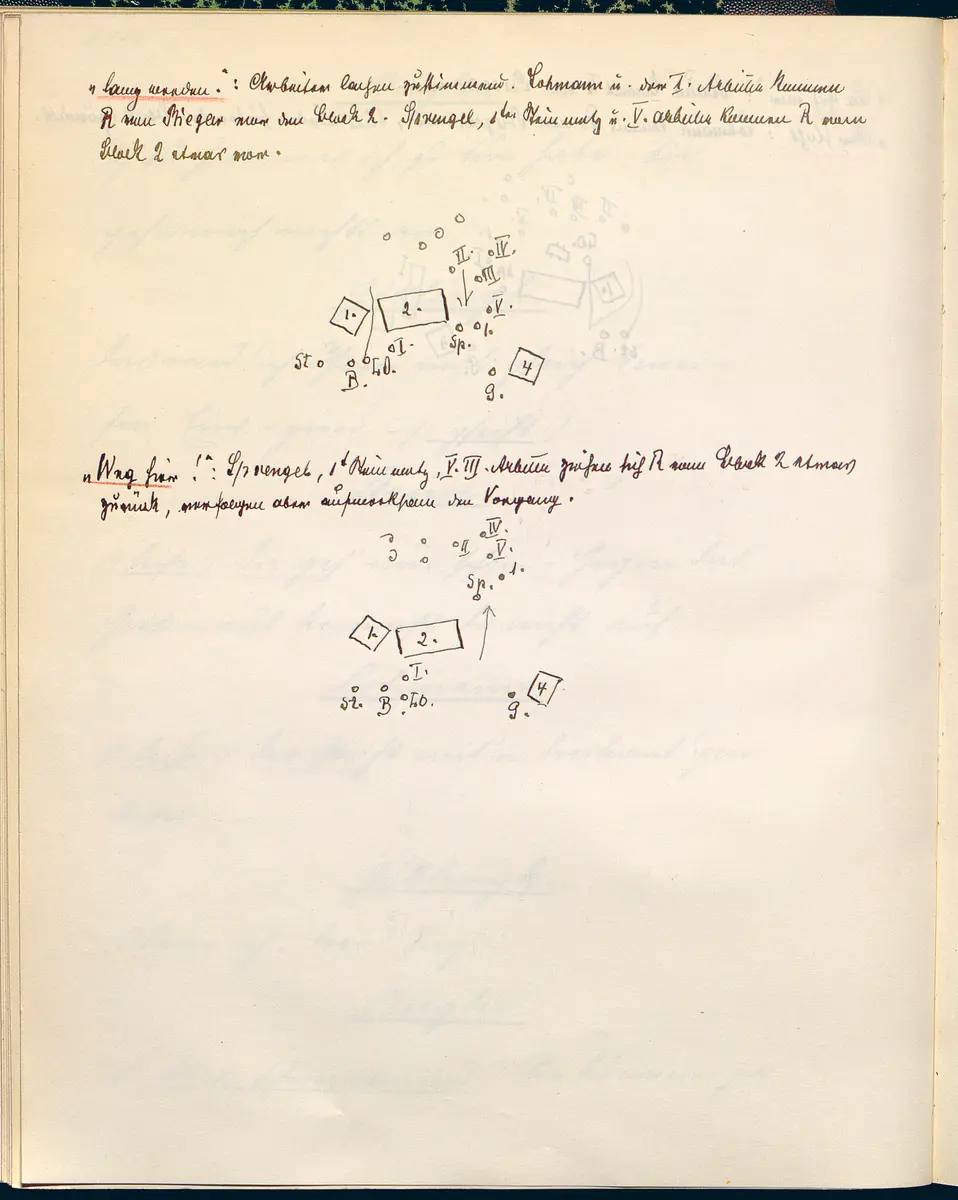 „lang werden.“: Arbeiter lachen zustimmend. Lohmann u. der I. Arbeiter kommen
R von Stieger vor den Block 2. Sprengel, 1ter Steinmetz u. V. Arbeiter kommen R vom
Block 2 etwas vor.
II. IV.
III
1. 2. V.
Sp. 1.
St I. Lo.
B. 4
g.
„Weg hier!“: Sprengel, 1t Steinmetz, V. III. Arbeiter ziehen sich R vom Block 2 etwas
zurück, verfolgen aber aufmerksam den Vorgang.
IV.
II V.
Sp. 1.
1. 2.
I.
St. B Lo. 4
g.